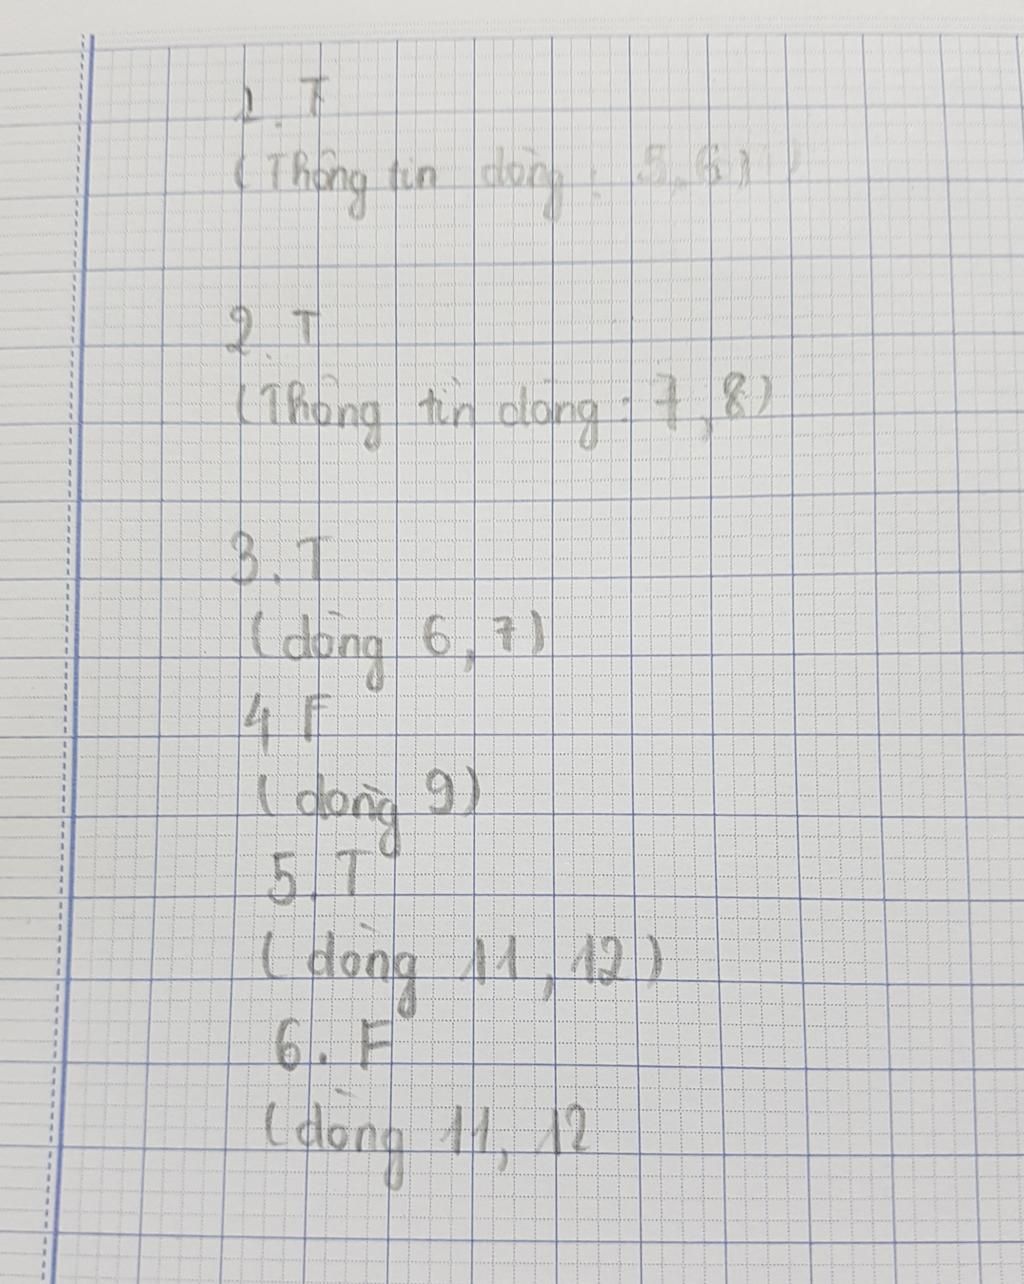 1. T
(Thông tin dòng: 5,6)
2. T
(Thông tin dòng: 7,8)
3. T
(dòng 6, 7)
4 F
(dòng 9)
5. T
(dòng 11, 12)
6. F
(dòng 11, 12